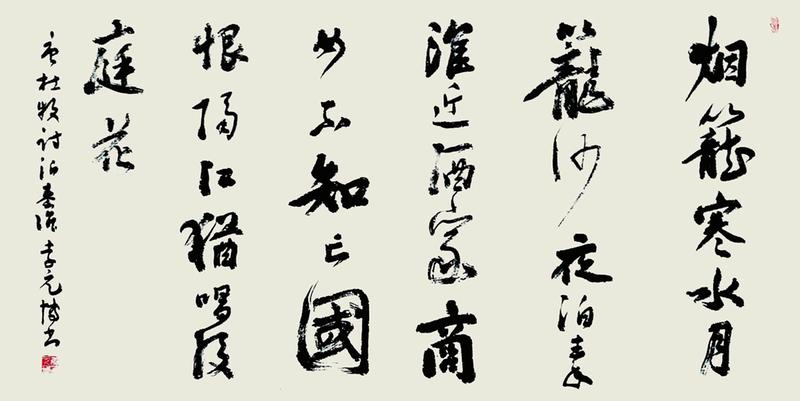 烟籠寒水月
籠沙夜泊秦
淮近酒家商
女不知亡國
恨隔江猶唱後
庭花
唐杜牧诗泊秦淮李元博书